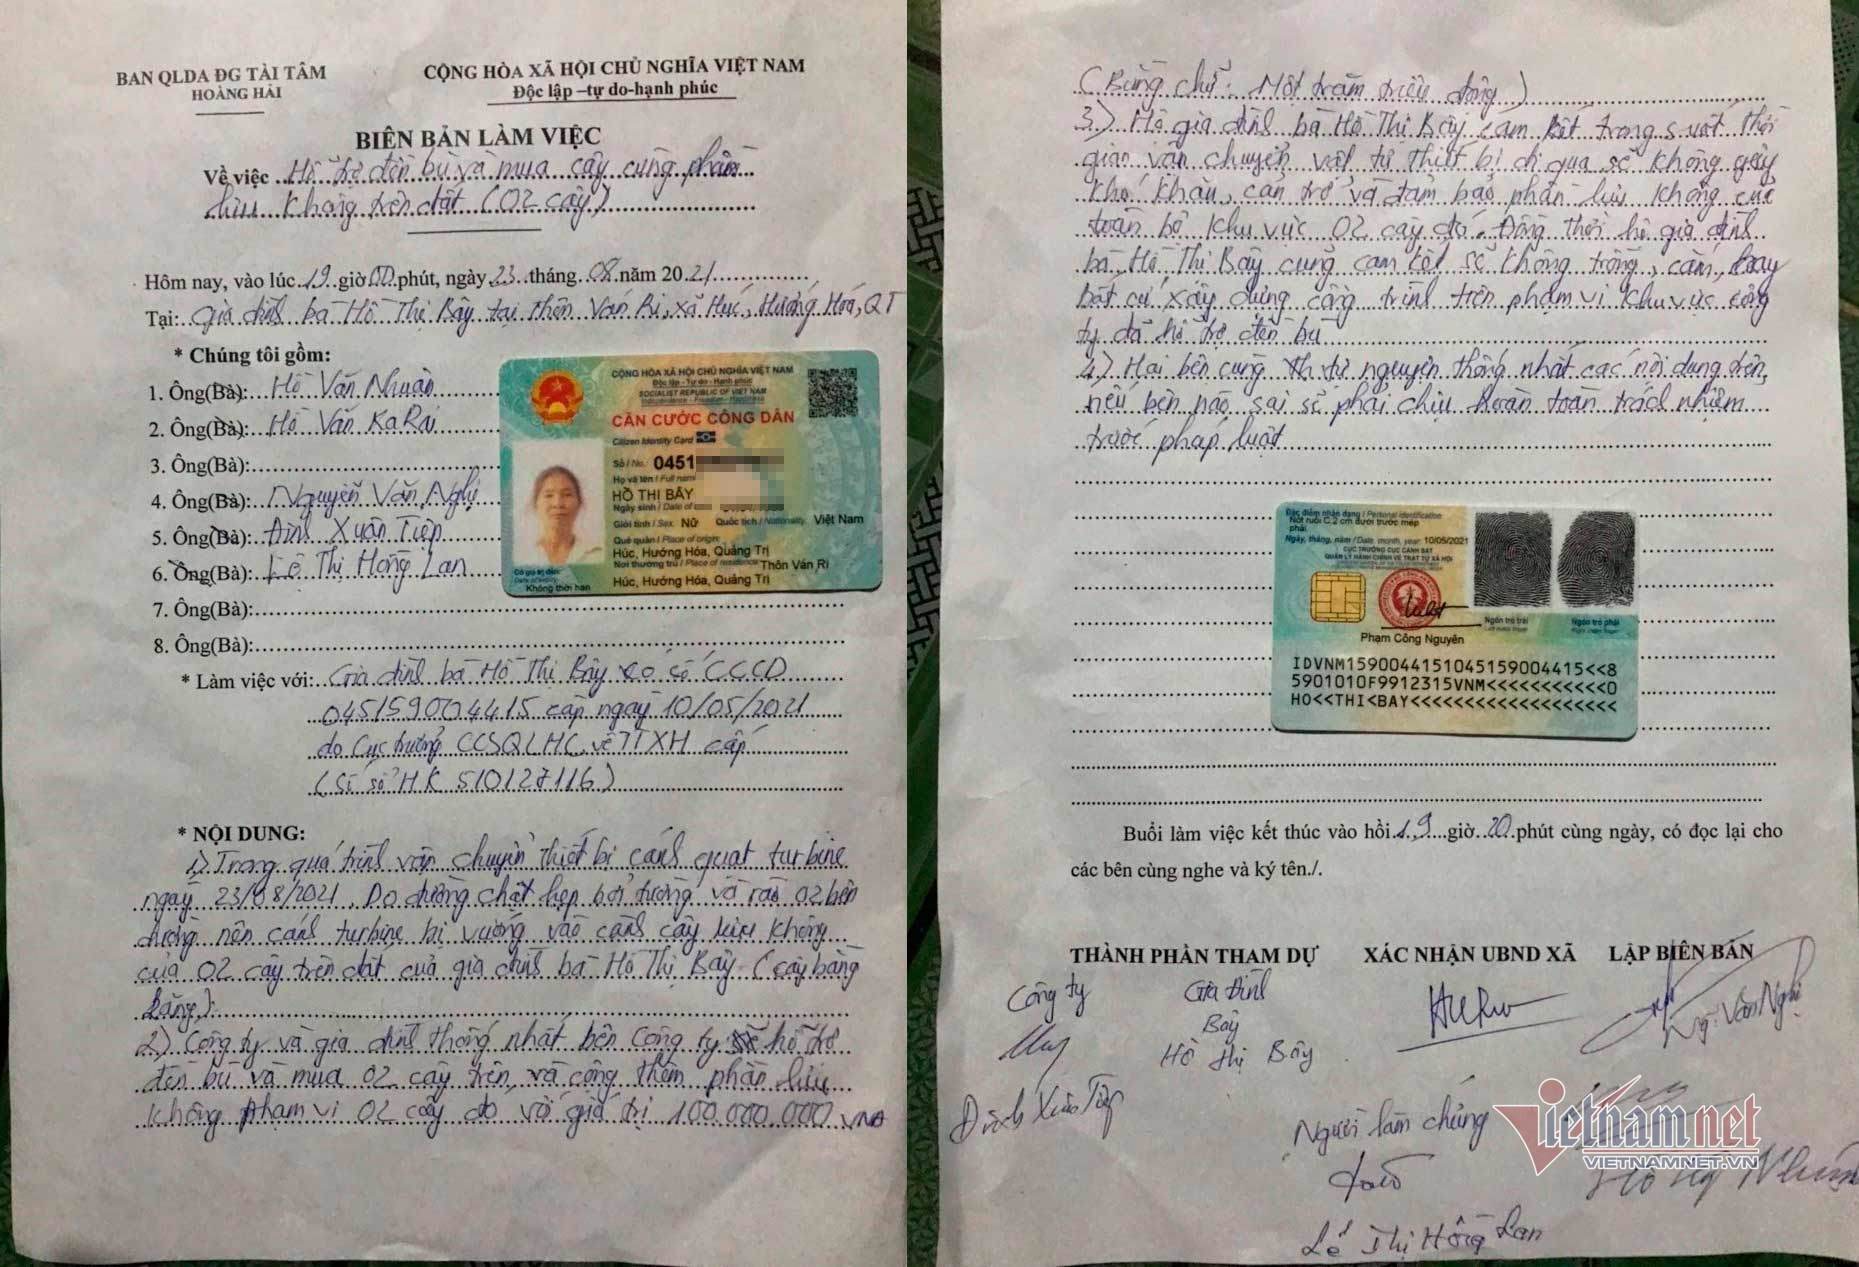 BAN QLDA ĐG TÀI TÂM
HOÀNG HẢI
CỘNG HÒA XÃ HỘI CHỦ NGHĨA VIỆT NAM
Độc lập –tự do-hạnh phúc
BIÊN BẢN LÀM VIỆC
Về việc Hỗ trợ đền bù và mua cây cùng phần
lưu không trên đất (02 cây)
Hôm nay, vào lúc 19 giờ 00 phút, ngày 23 tháng 08 năm 2021
Tại: Gia đình bà Hồ Thị Bây tại thôn Ván Ri, xã Húc, Hướng Hoá, QT
* Chúng tôi gồm:
1. Ông(Bà): Hồ Văn Nhuàn
2. Ông(Bà): Hồ Văn KaRai
3. Ông(Bà):
4. Ông(Bà): Nguyễn Văn Nghị
5. Ông(Bà): Đinh Xuân Tiệp
6. Ông(Bà): Lê Thị Hồng Lan
7. Ông(Bà):
8. Ông(Bà):
CỘNG HÒA XÃ HỘI CHỦ NGHĨA VIỆT NAM
Độc lập - Tự do - Hạnh phúc
SOCIALIST REPUBLIC OF VIET NAM
Independence - Freedom - Happiness
CĂN CƯỚC CÔNG DÂN
Citizen Identity Card
Số / No.: 0451
Họ và tên / Full name
HỒ THỊ BÂY
Ngày sinh / Date of
Giới tính / Sex: Nữ Quốc tịch / Nationality: Việt Nam
Quê quán / Place of origin:
Húc, Hướng Hóa, Quảng Trị
Nơi thường trú / Place of residence: Thôn Ván Ri
Húc, Hướng Hóa, Quảng Trị
Có giá trị đến:
Date of expiry
Không thời hạn
* Làm việc với: Gia đình bà Hồ Thị Bây có số CCCD
045159004415 cấp ngày 10/05/2021
do Cục trưởng CCSQLHC về TTXH cấp
(Số sổ HK 510127116)
* NỘI DUNG:
1) Trong quá trình vận chuyển thiết bị cánh quạt turbine
ngày 23/08/2021. Do đường chật hẹp bởi tường và rào 02 bên
đường nên cánh turbine bị vướng vào cành cây lưu không
của 02 cây trên đất của gia đình bà Hồ Thị Bây (cây bằng
lăng).
2) Công ty và gia đình thống nhất bên công ty sẽ hỗ trợ
đền bù và mua 02 cây trên, và cộng thêm phần lưu
không phạm vi 02 cây đó với giá trị 100.000.000 VNĐ
(Bằng chữ: Một trăm triệu đồng)
3.) Hộ gia đình bà Hồ Thị Bây cam kết trong suốt thời
gian vận chuyển vật tư thiết bị đi qua sẽ không gây
khó khăn, cản trở và đảm bảo phần lưu không cục
toàn bộ khu vực 02 cây đó. Đồng thời hộ gia đình
bà Hồ Thị Bây cũng cam kết sẽ không trồng, cắm, hay
bất cứ xây dựng công trình trên phạm vi khu vực công
ty đã hỗ trợ đền bù
4.) Hai bên cùng tự nguyện thống nhất các nội dung trên,
nếu bên nào sai sẽ phải chịu hoàn toàn trách nhiệm
trước pháp luật
Đặc điểm nhận dạng / Personal identification:
Nốt ruồi C.2 cm dưới trước mép
phải
Ngày, tháng, năm / Date, month, year: 10/05/2021
CỤC TRƯỞNG CỤC CẢNH SÁT
QUẢN LÝ HÀNH CHÍNH VỀ TRẬT TỰ XÃ HỘI
Ngón trỏ trái
Ngón trỏ phải
Phạm Công Nguyên
IDVNM1590044151045159004415<<8
5901010F9912315VNM<<<<<<<<<<<0
HO<<THI<BAY<<<<<<<<<<<<<<<<<<<
Buổi làm việc kết thúc vào hồi 19 giờ 20 phút cùng ngày, có đọc lại cho
các bên cùng nghe và ký tên./.
THÀNH PHẦN THAM DỰ XÁC NHẬN UBND XÃ LẬP BIÊN BẢN
Công ty
Gia đình
Bây
Hồ Thị Bây
Ng. Văn Nghị
Đinh Xuân Tiệp
Người làm chứng
Lê Thị Hồng Lan
Vietnamnet
VIETNAMNET.VN